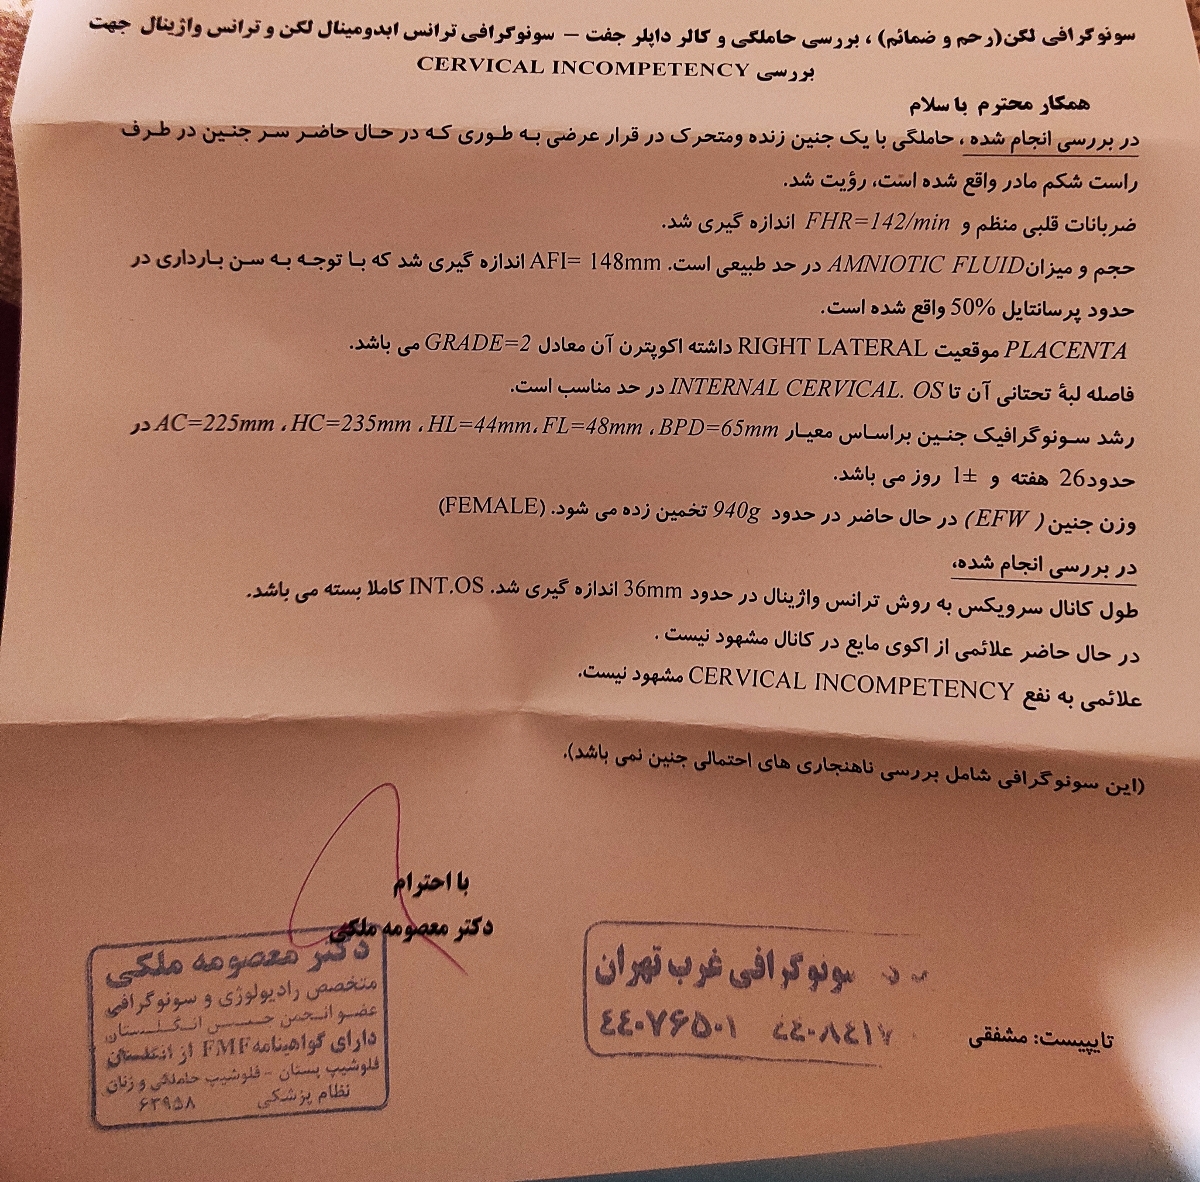 سونوگرافی لگن(رحم و ضمائم) ، بررسی حاملگی و کالر داپلر جفت – سونوگرافی ترانس ابدومینال لگن و ترانس واژینال جهت
بررسی CERVICAL INCOMPETENCY
همکار محترم با سلام
در بررسی انجام شده ، حاملگی با یک جنین زنده ومتحرک در قرار عرضی به طوری که در حال حاضر سر جنین در طرف
راست شکم مادر واقع شده است، رؤیت شد.
ضربانات قلبی منظم و FHR=142/min اندازه گیری شد.
حجم و میزان AMNIOTIC FLUID در حد طبیعی است. AFI= 148mm اندازه گیری شد که با توجه به سن بارداری در
حدود پرسانتایل 50% واقع شده است.
PLACENTA موقعیت RIGHT LATERAL داشته اکوپترن آن معادل GRADE=2 می باشد.
فاصله لبهٔ تحتانی آن تا INTERNAL CERVICAL. OS در حد مناسب است.
رشد سونوگرافیک جنین براساس معیار BPD=65mm ، FL=48mm ،HL=44mm ، HC=235mm ، AC=225mm در
حدود26 هفته و ±1 روز می باشد.
وزن جنین ( EFW) در حال حاضر در حدود 940g تخمین زده می شود. (FEMALE)
در بررسی انجام شده،
طول کانال سرویکس به روش ترانس واژینال در حدود 36mm اندازه گیری شد. INT.OS کاملا بسته می باشد.
در حال حاضر علائمی از اکوی مایع در کانال مشهود نیست .
علائمی به نفع CERVICAL INCOMPETENCY مشهود نیست.
(این سونوگرافی شامل بررسی ناهنجاری های احتمالی جنین نمی باشد).
با احترام
دکتر معصومه ملکی
دکتر معصومه ملکی
متخصص رادیولوژی و سونوگرافی
عضو انجمن جنین انگلستان
دارای گواهینامه FMF از انگلستان
فلوشیپ پستان - فلوشیپ حاملگی و زنان
نظام پزشکی ۶۳۹۵۸
سونوگرافی غرب تهران
۴۴۰۷۶۵۰۱ ۴۴۰۸۴۱۷
تایپیست: مشفقی